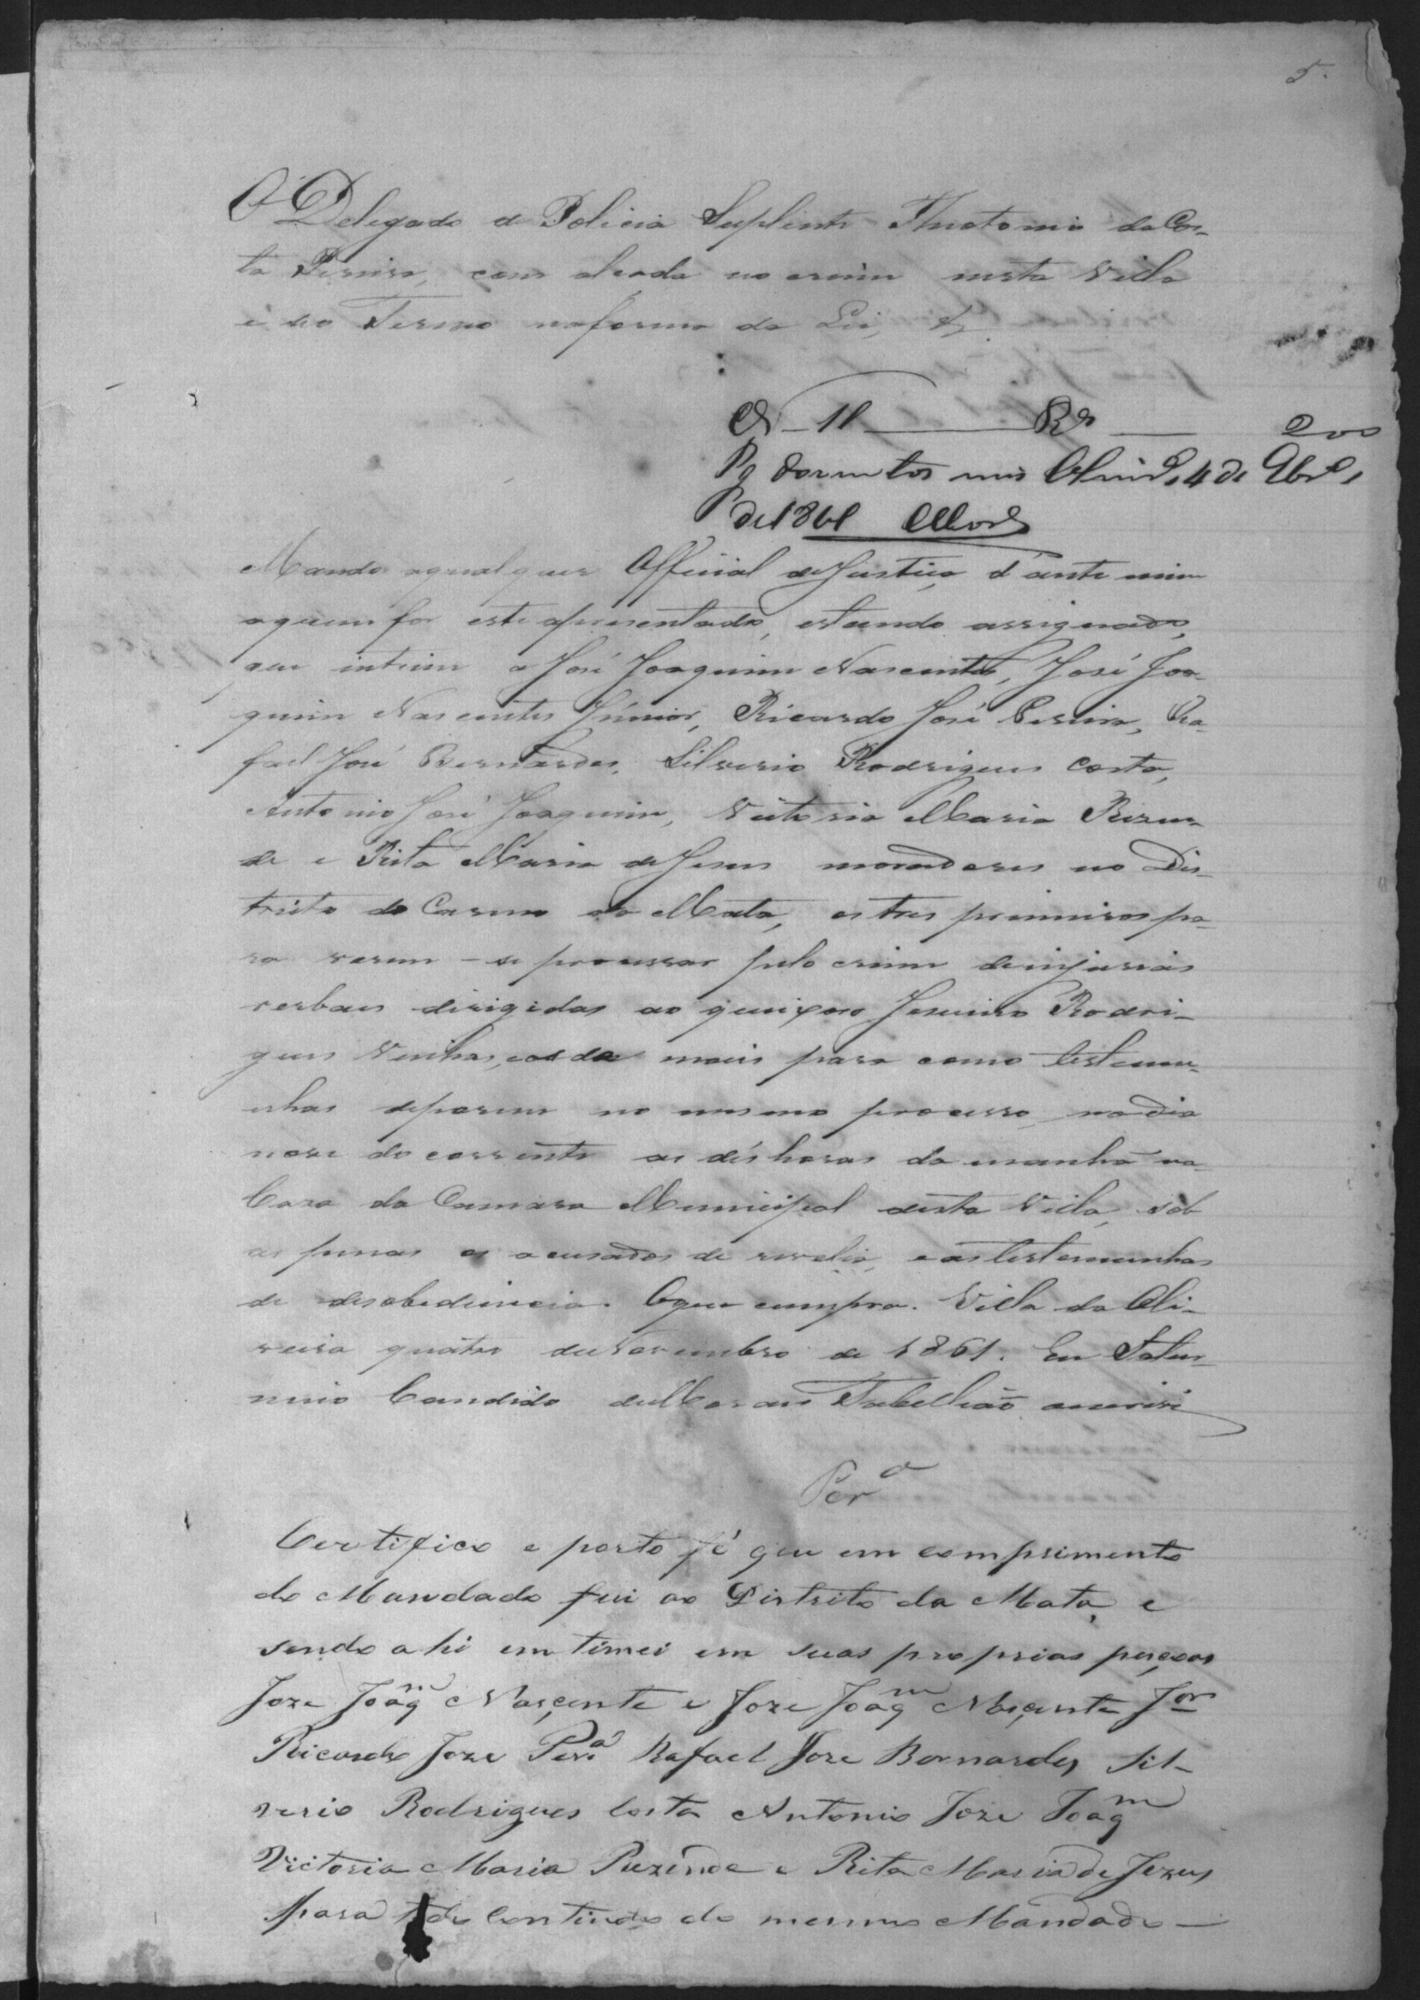 5.
O Delegado de Policia Suplente Theotonio da Cos-
ta Pereira, com alçada no crime nesta Villa
e seo Termo na forma da Lei, &
N 11 Rs 200
Pg duzentos reis Olivrª 4 de 9brº
de 1861 Moraes
Mando aqualquer Official de Justiça d'ante mim
aquem for este apresentado, estando assignado,
que intime a José Joaquim Nascentes, José Joa-
quim Nascentes Júnior, Ricardo José Pereira, Ra-
fael José Bernardes, Silverio Rodrigues Costa,
Antonio José Joaquim, Victoria Maria Rezen-
de e Rita Maria de Jesus moradores no Dis-
tricto do Carmo da Mata, os tres primeiros pa-
ra verem-se processar pelo crime de injurias
verbaes dirigidas ao queixoso Rodri-
gues e os de mais para como testemu-
nhas deporem no mesmo processo, no dia
nove do corrente as dés horas da manhã na
Caza da Camara Municipal desta Villa, sob
as penas os acusados de revelia, e as testemunhas
de desobediencia. O que cumpra. Villa da Oli-
veira quatro de Novembro de 1861. Eu Satur-
nino Candido de Moraes Tabellião escrivi
Perª
Certifico e porto fé que em comprimento
do Mandado fui ao Distrito da Mata, e
sendo ahi em timei em suas proprias peçoas
Joze Joaqm Naçente e Joze Joaqm Naçente Jor
Ricardo Joze Perª Rafael Joze Bernardes Sil-
verio Rodrigues Costa Antonio Joze Joaqm
Victoria Maria Rezende e Rita Maria de Jezus
para todo Contiudo do mesmo Mandado —